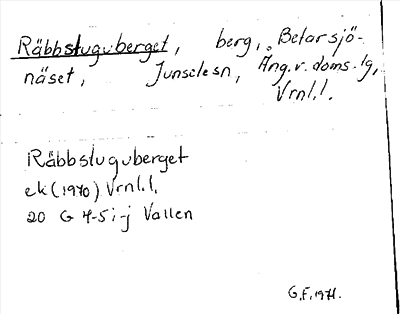 Räbbstuguberget, berg, Betarsjö-
näset, Junselesn, Ång.v.doms.lg,
Vrnl.l.
Räbbstuguberget
ek (1970) Vrnl.l.
20 G 4-5 i-j Vallen
G.F. 1971.